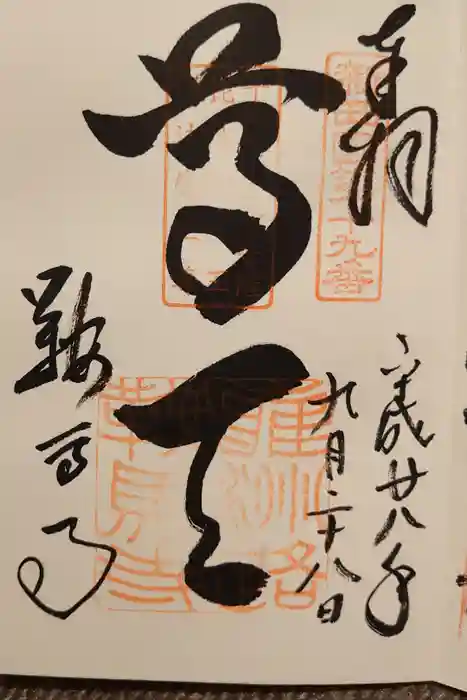 奉拝
新西国第十九番
平成廿八年
九月二十八日
尊天
鞍馬寺